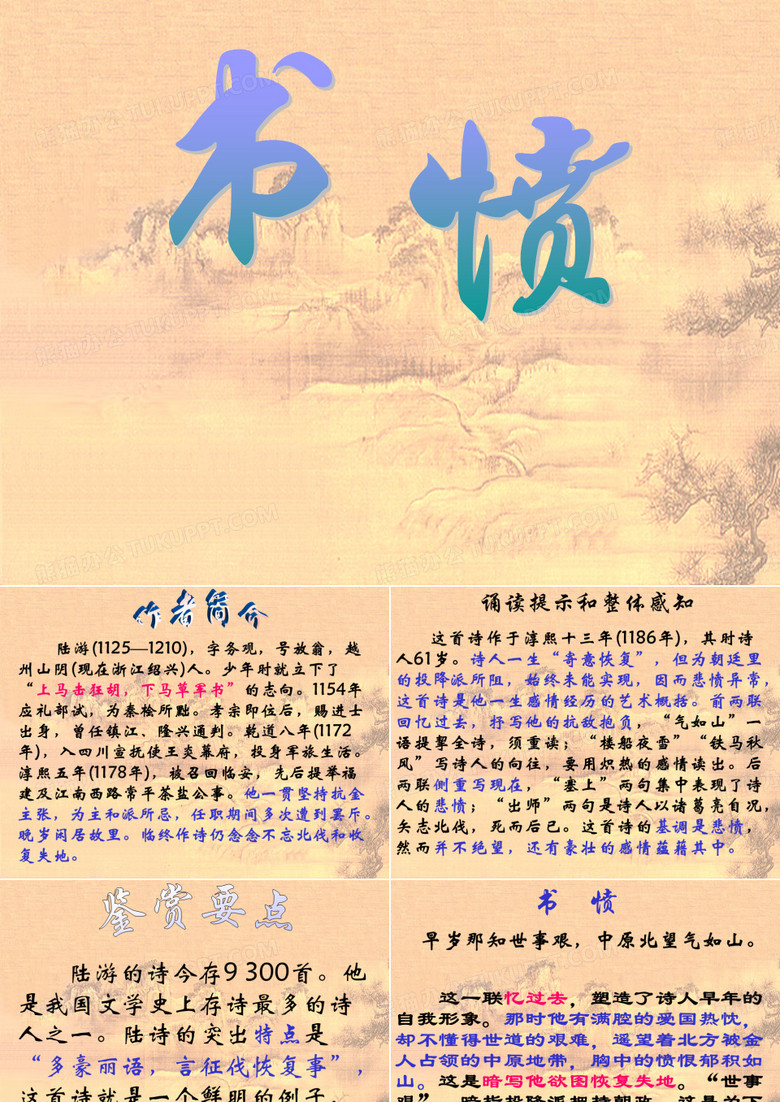 书愤
作者简介
陆游(1125—1210)，字务观，号放翁，越
州山阴(现在浙江绍兴)人。少年时就立下了
“上马击狂胡，下马草军书”的志向。1154年
应礼部试，为秦桧所黜。孝宗即位后，赐进士
出身，曾任镇江、隆兴通判。乾道八年(1172
年)，入四川宣抚使王炎幕府，投身军旅生活。
淳熙五年(1178年)，被召回临安，先后提举福
建及江南西路常平茶盐公事。他一贯坚持抗金
主张，为主和派所忌，任职期间多次遭到罢斥。
晚岁闲居故里。临终作诗仍念念不忘北伐和收
复失地。
诵读提示和整体感知
这首诗作于淳熙十三年(1186年)，其时诗
人61岁。诗人一生“寄意恢复”，但为朝廷里
的投降派所阻，始终未能实现，因而悲愤异常，
这首诗是他一生感情经历的艺术概括。前两联
回忆过去，抒写他的抗敌抱负，“气如山”一
语提挈全诗，须重读；“楼船夜雪”“铁马秋
风”写诗人的向往，要用炽热的感情读出。后
两联侧重写现在，“塞上”两句集中表现了诗
人的悲愤；“出师”两句是诗人以诸葛亮自况，
矢志北伐，死而后已。这首诗的基调是悲愤，
然而并不绝望，还有豪壮的感情蕴藉其中。
鉴赏要点
陆游的诗今存9 300首。他
是我国文学史上存诗最多的诗
人之一。陆诗的突出特点是
“多豪丽语，言征伐恢复事”，
这首诗就是一个鲜明的例子。
书 愤
早岁那知世事艰，中原北望气如山。
这一联忆过去，塑造了诗人早年的
自我形象。那时他有满腔的爱国热忱，
却不懂得世道的艰难，遥望着北方被金
人占领的中原地带，胸中的愤恨郁积如
山。这是暗写他欲图恢复失地。“世事